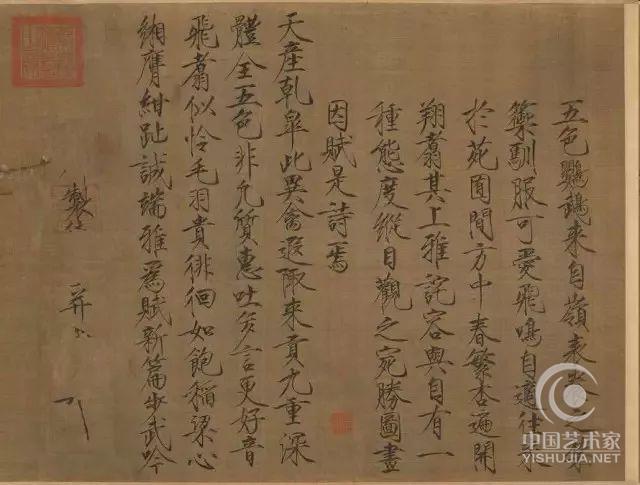 五色鸚鵡來自嶺表
籞馴服可愛飛鳴自適往來
於苑囿間方中春繁杏遍開
翔翥其上雅詫容與自有一
種態度縱目觀之宛勝圖畫
因賦是詩焉
天產乾皋此異禽遐陬來貢九重深
體全五色非凡質惠吐多言更好音
飛翥似憐毛羽貴徘徊如飽稻粱心
緗膺紺趾誠端雅爲賦新篇步武吟
製
并
中国艺术家
YISHUJIA.NET